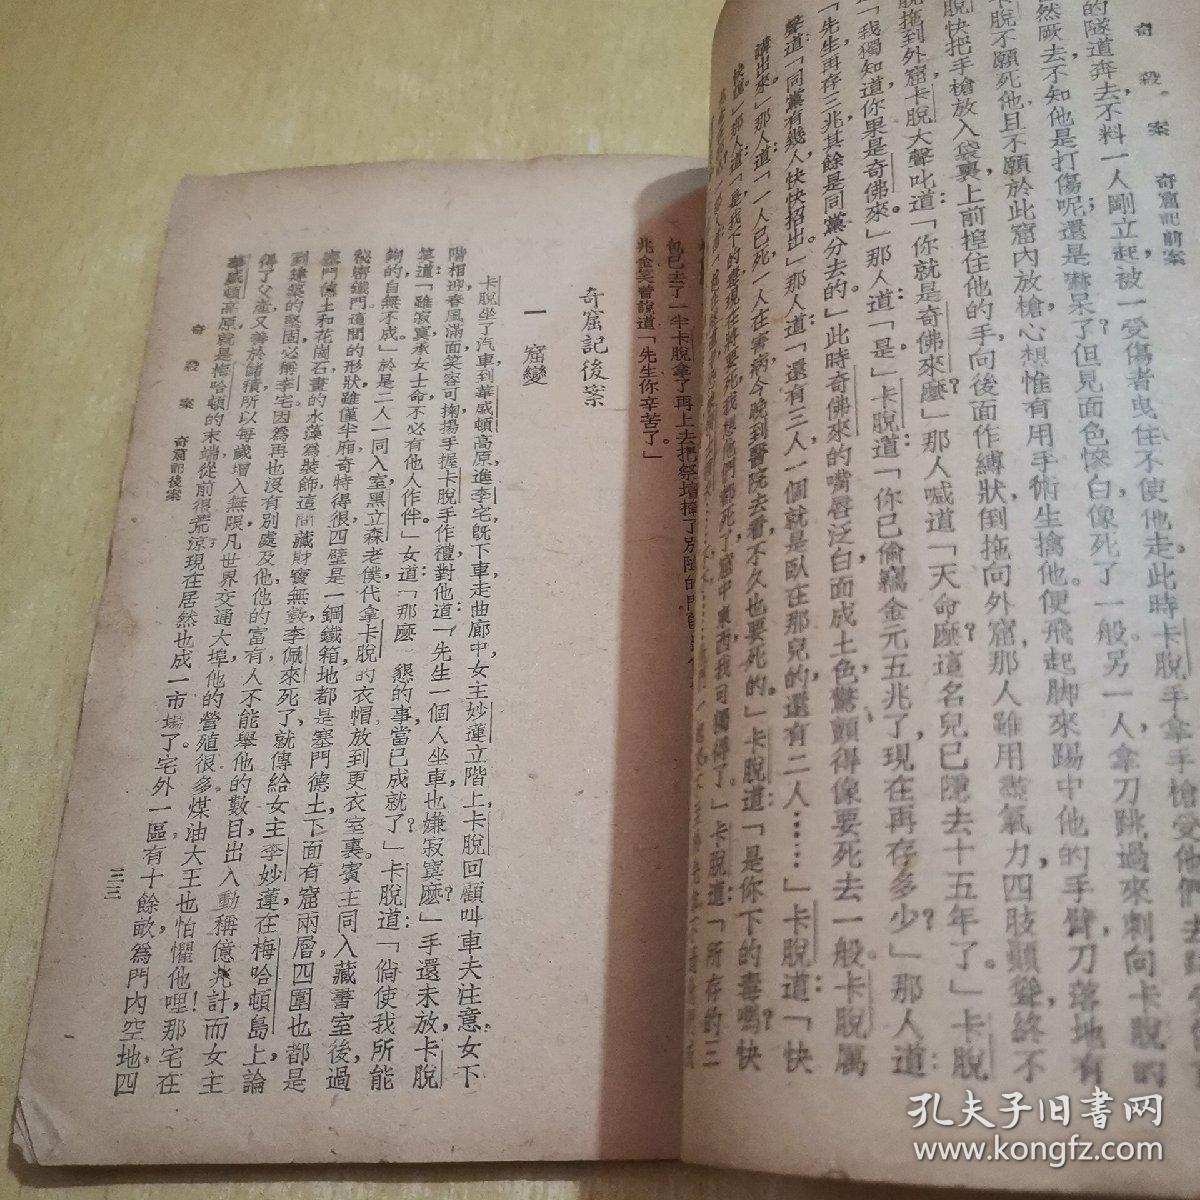 奇殺案　奇窟記前案
的隧道奔去不料一人剛立起被一受傷者曳住不使他走此時卡脫手拿手槍受他們去
然厥去不知他是打傷呢還是嚇呆了但見面色慘白像死了一般另一人拿刀跳過來刺向卡脫的
脫不願死他且不願於此窟內放槍心想惟有用手術生擒他便飛起脚來踢中他的手臂刀落地有
脫快把手槍放入袋裏上前揑住他的手向後面作縛狀倒拖向外窟那人雖用盡氣力四肢顫聳終不
脫拖到外窟卡脫大聲叱道「你就是奇佛來麼」那人喊道「天命麼這名兒已隱去十五年了」卡脫
「我獨知道你果是奇佛來」那人道「是」卡脫道「你已偷竊金元五兆了現在再存多少」那人道
「先生再存三兆其餘是同黨分去的」此時奇佛來的嘴唇泛白面成土色驚顫得像要死去一般卡脫厲
聲道「同黨有幾人快快招出」那人道「還有三人一個就是臥在那兒的還有二人……」卡脫道「快
講出來」那人道「一人已死一人在害病今晚到醫院去看不久也要死的」卡脫道「是你下的毒嗎快
快說」那人道「是我下的毒現在將要死我想他們都死了窟中東西我可獨得了」卡脫道「所存的三
兆金笑嘗說道「先生你辛苦了」
奇窟記後案
一　窟變
卡脫坐了汽車到華盛頓高原進李宅旣下車走曲廊中女主妙蓮立階上卡脫回顧叫車夫注意女下
階相迎春風滿面笑容可掬揚手握卡脫手作禮對他道「先生一個人坐車也嫌寂寞麼」手還未放卡脫
笑道「雖寂寞承女士命不必有他人作伴」女道「那麼　懇的事當已成就了」卡脫道「倘使我所能
夠的自無不成」於是二人一同入室黑立森老僕代拿卡脫的衣帽放到更衣室裏賓主同入藏書室後過
秘密鐵門這間的形狀雖僅半廂奇特得很四壁是一鋼鐵箱地都是塞門德土下面有窟兩層四圍也都是
塞門德土和花崗石畫的水藻為裝飾這間藏財寶無數李佩來死了就傳給女主李妙蓮在梅哈頓島上論
到建築的堅固必解李宅因為再也沒有別處及他他的富有人不能舉他的數目出入動稱億兆計而女主
得了父產又善於儲積所以每歲增入無限凡世界交通大埠他的營殖很多煤油大王也怕懼他哩那宅在
華盛頓高原就是梅哈頓的末端從前很荒涼現在居然也成一市塲了宅外一區有十餘畝為門內空地四
奇殺案　奇窟記後案
三三
孔夫子旧书网
www.kongfz.com